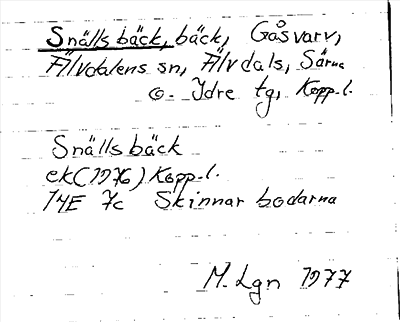 Snälls bäck, bäck, Gåsvarv,
Älvdalens sn, Älvdals, Särna
o. Idre tg, Kopp.l.
Snälls bäck
ek (1976) Kopp.l.
14E 7c Skinnar bodarna
M. Lgn 1977